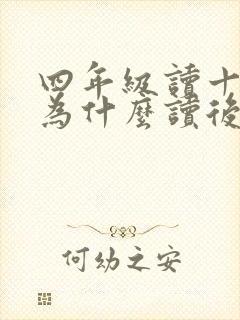 四年級讀十
為什麼讀後
何幼之安